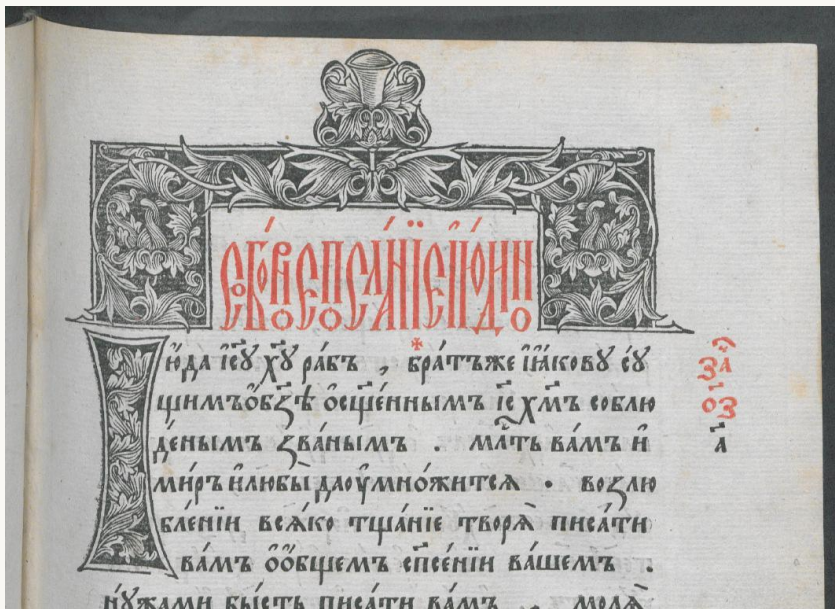 соборное посланїе їюдино
Їю́да і҆су хꙋ ра́бъ , бра́тъже і҆а́ковꙋ сꙋ
щимъ о҆бзѣ ѡ҆сще́нным і҆с хм҃ъ соблю
де́нымъ зва́нымъ . мл҃ть ва́мъ и҆
ми́ръ и҆ любы̀ да оу҆мно́жится · возлю
бле́нїи всѧ́ко тща́нїе творѧ̀ писа́ти
ва́мъ о҆ о҆́бщемъ сп҃се́нїи ва́шемъ .
нꙋ́жами бы́сть писа́ти ва́мъ молѧ̀
за҃
о҃з
а҃